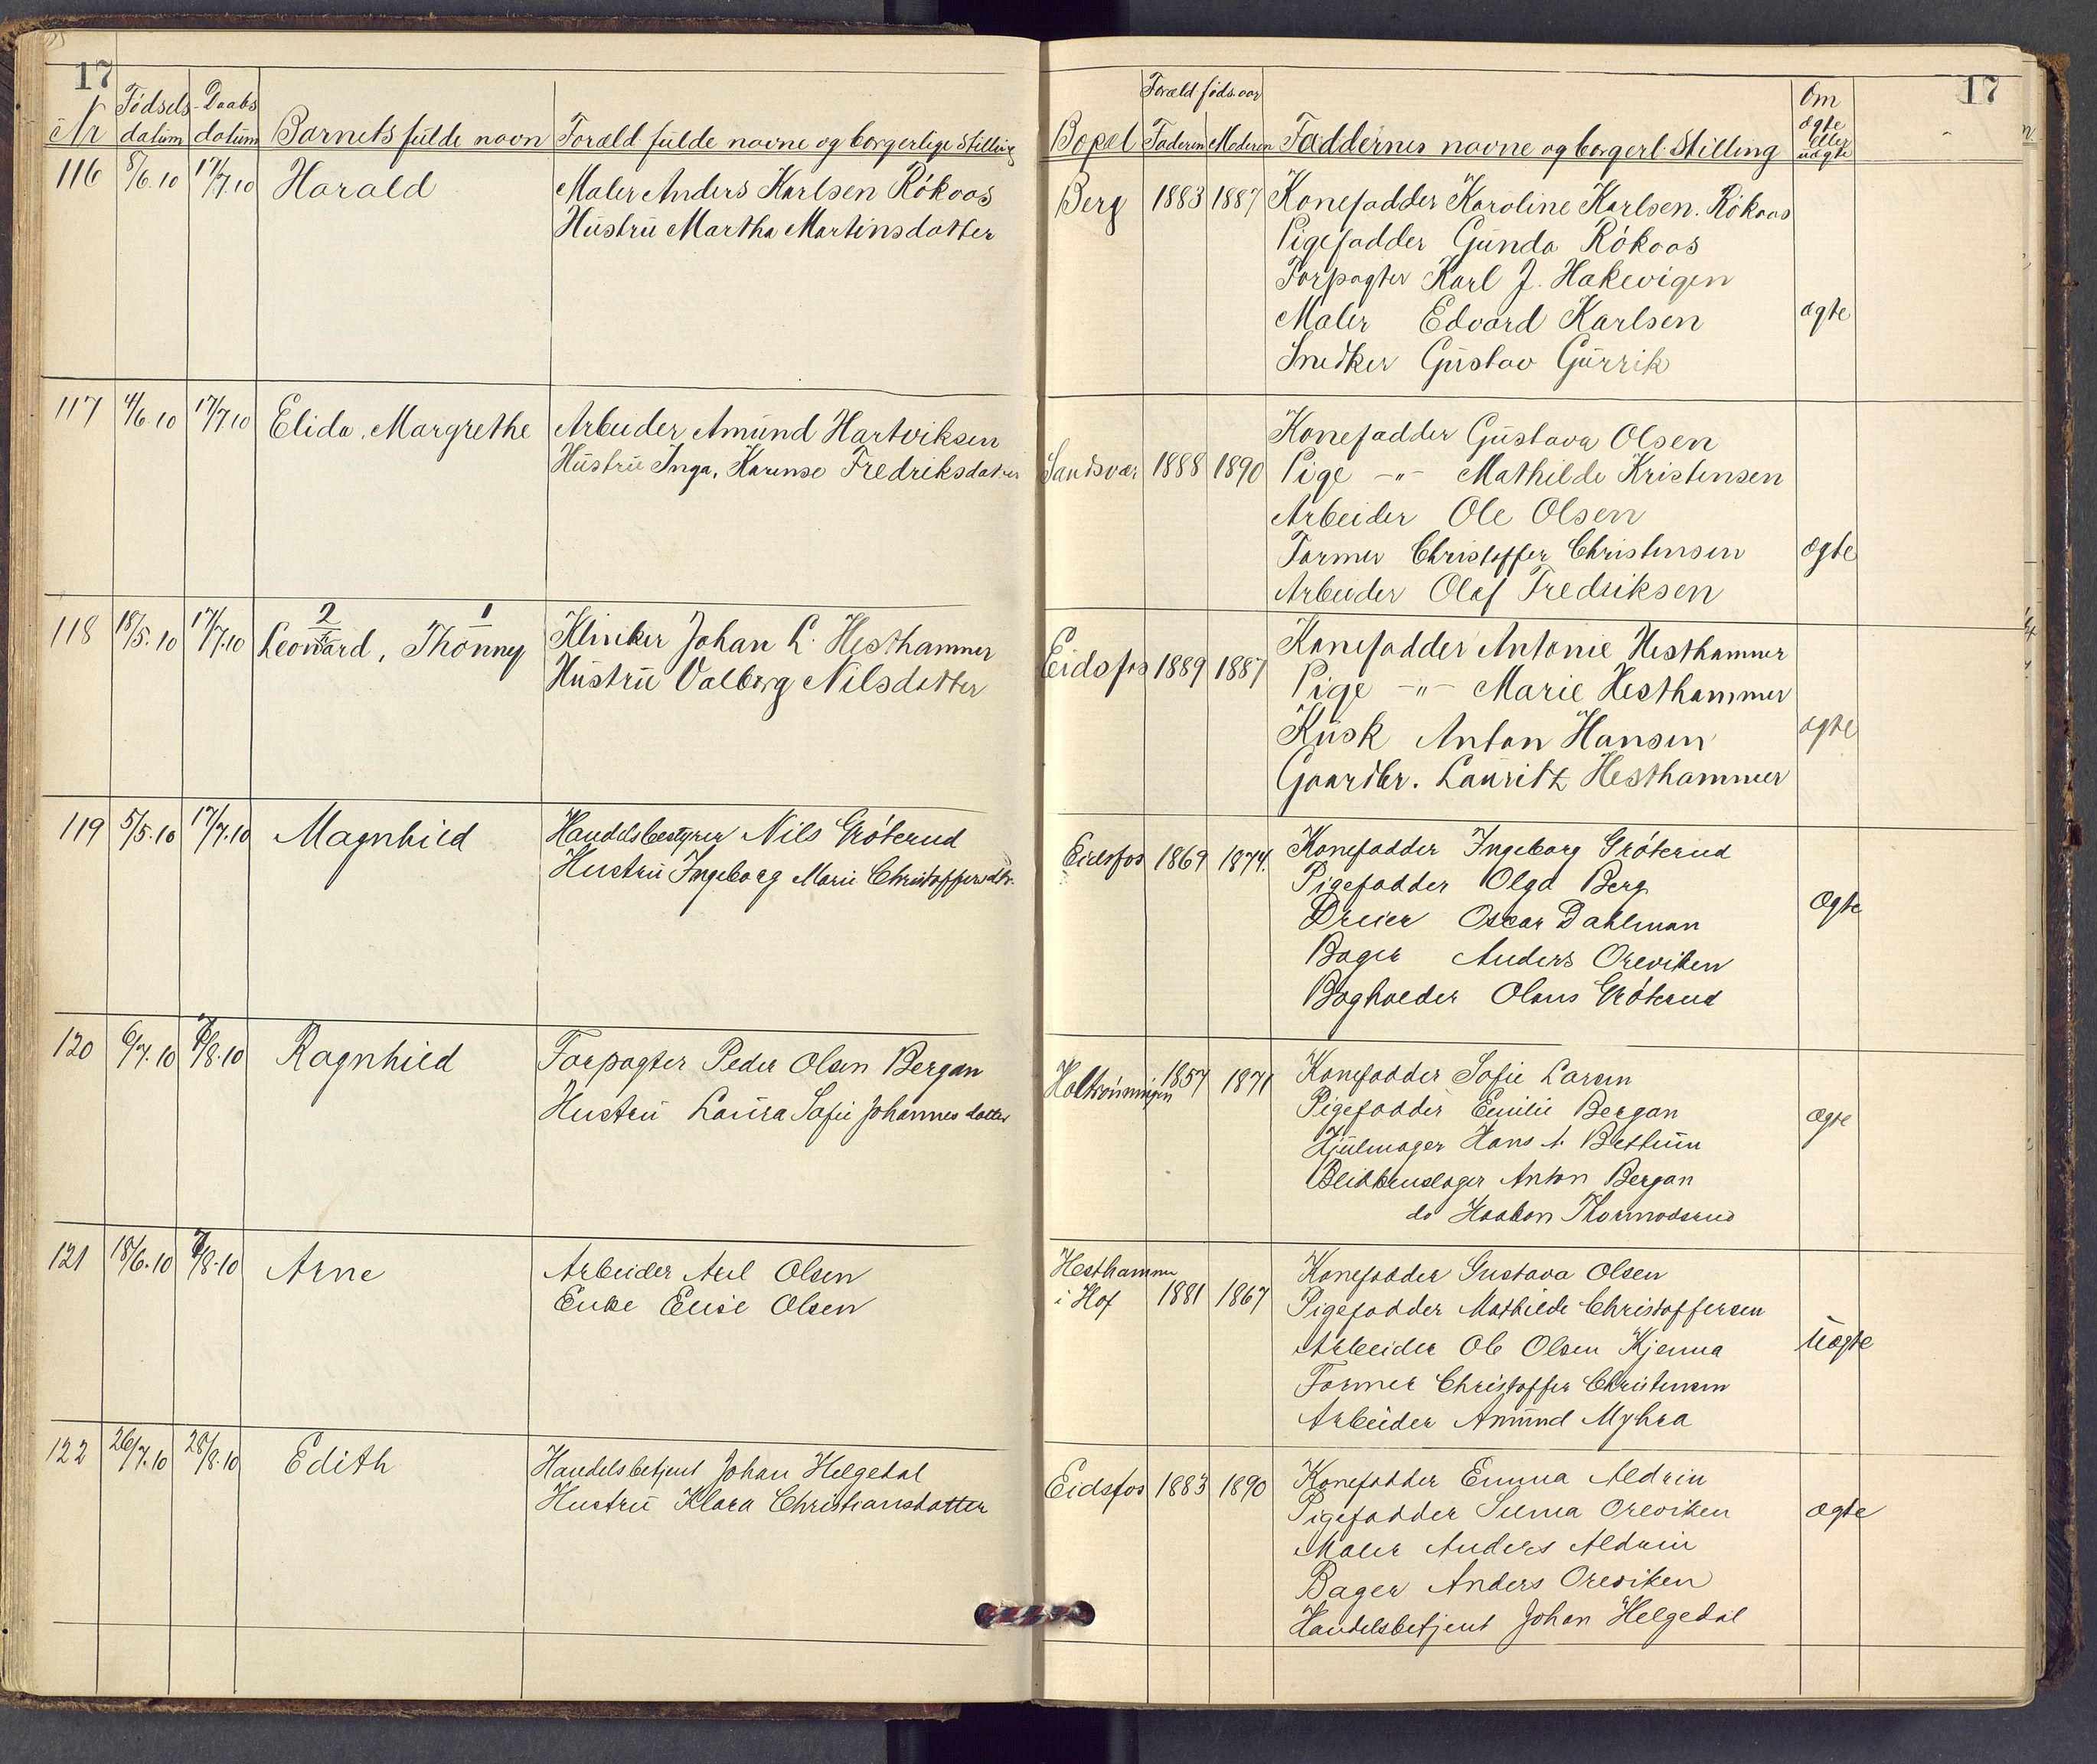 17
Nr
Fødsels datum
Daabs datum
Barnets fulde navn
Foræld fulde navne og borgerlige stilling
116
8/6.10
17/7.10
Harald
Maler Anders Karlsen Rökaas
Hustru Martha Martinsdatter
117
4/6 10
17/7 10
Elida, Margrethe
Arbeider Amund Hartviksen
Hustru Inga, Karense Fredriksdatter
118
18/5.10
17/7.10
2 1
Leonard, Thönney
Klinker Johan L. Hesthammer
Hustru Valborg Nilsdatter
119
5/5.10
17/7.10
Magnhild
Handelsbestyrer Nils Gröterud
Hustru Ingeborg Marie Christoffersdtr.
120
6/7.10
7/8.10
Ragnhild
Forpagter Peder Olsen Bergan
Hustru Laura Sofie Johannesdatter
121
18/6.10
7/8.10
Arne
Arbeider Axel Olsen
Enke Elise Olsen
122
26/7.10
28/8.10
Edith
Handelsbetjent Johan Helgedal
Hustru Klara Christiansdatter
17
Bopæl
Foræld føds.aar
Faderen
Moderen
Faddernes navne og borgerl. Stilling
Om ægte eller uægte
Berg
1883
1887
Konefadder Karoline Karlsen. Rökaas
Pigefadder Gunda Rökaas
Forpagter Karl J. Hakevigen
Maler Edvard Karlsen
Snedker Gustav Gurrik
ægte
Sandsvær
1888
1890
Konefadder Gustava Olsen
Pige -"- Mathilde Kristensen
Arbeider Ole Olsen
Former Christoffer Christensen
Arbeider Olaf Fredriksen
ægte
Eidsfos
1889
1887
Konefadder Antonie Hesthammer
Pige -"- Marie Hesthammer
Kusk Anton Hansen
Gaardbr. Lauritz Hesthammer
ægte
Eidsfos
1869
1874.
Konefadder Ingeborg Gröterud
Pigefadder Olga Berg
Dreier Oscar Dahlman
Bager Anders Oreviken
Bogholder Olaus Gröterud
ægte
Holtrönningen
1857
1871
Konefadder Sofie Larsen
Pigefadder Emilie Bergan
Hjulmager Hans A. Bettum
Blikkenslager Anton Bergan
do Haakon Thormodsrud
ægte
Hesthammer
i Hof
1881
1867
Konefadder Gustava Olsen
Pigefadder Mathilde Christoffersen
Arbeider Ole Olsen Kjenna
Former Christoffer Christensen
Arbeider Amund Myhra
uægte
Eidsfos
1883
1890
Konefadder Emma Aldrin
Pigefadder Selma Oreviken
Maler Anders Aldrin
Bager Anders Oreviken
Handelsbetjent Johan Helgedal
ægte